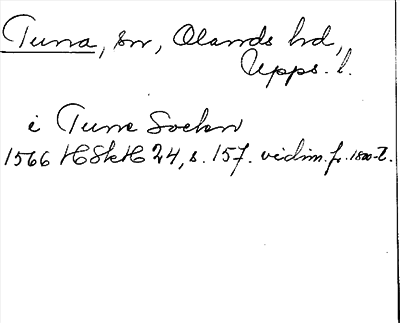 Tuna, sn, Olands hd,
Upps. l.
i Tuna Sockn
1566 HSkH 24, s. 157. vidim. fr. 1800-t.